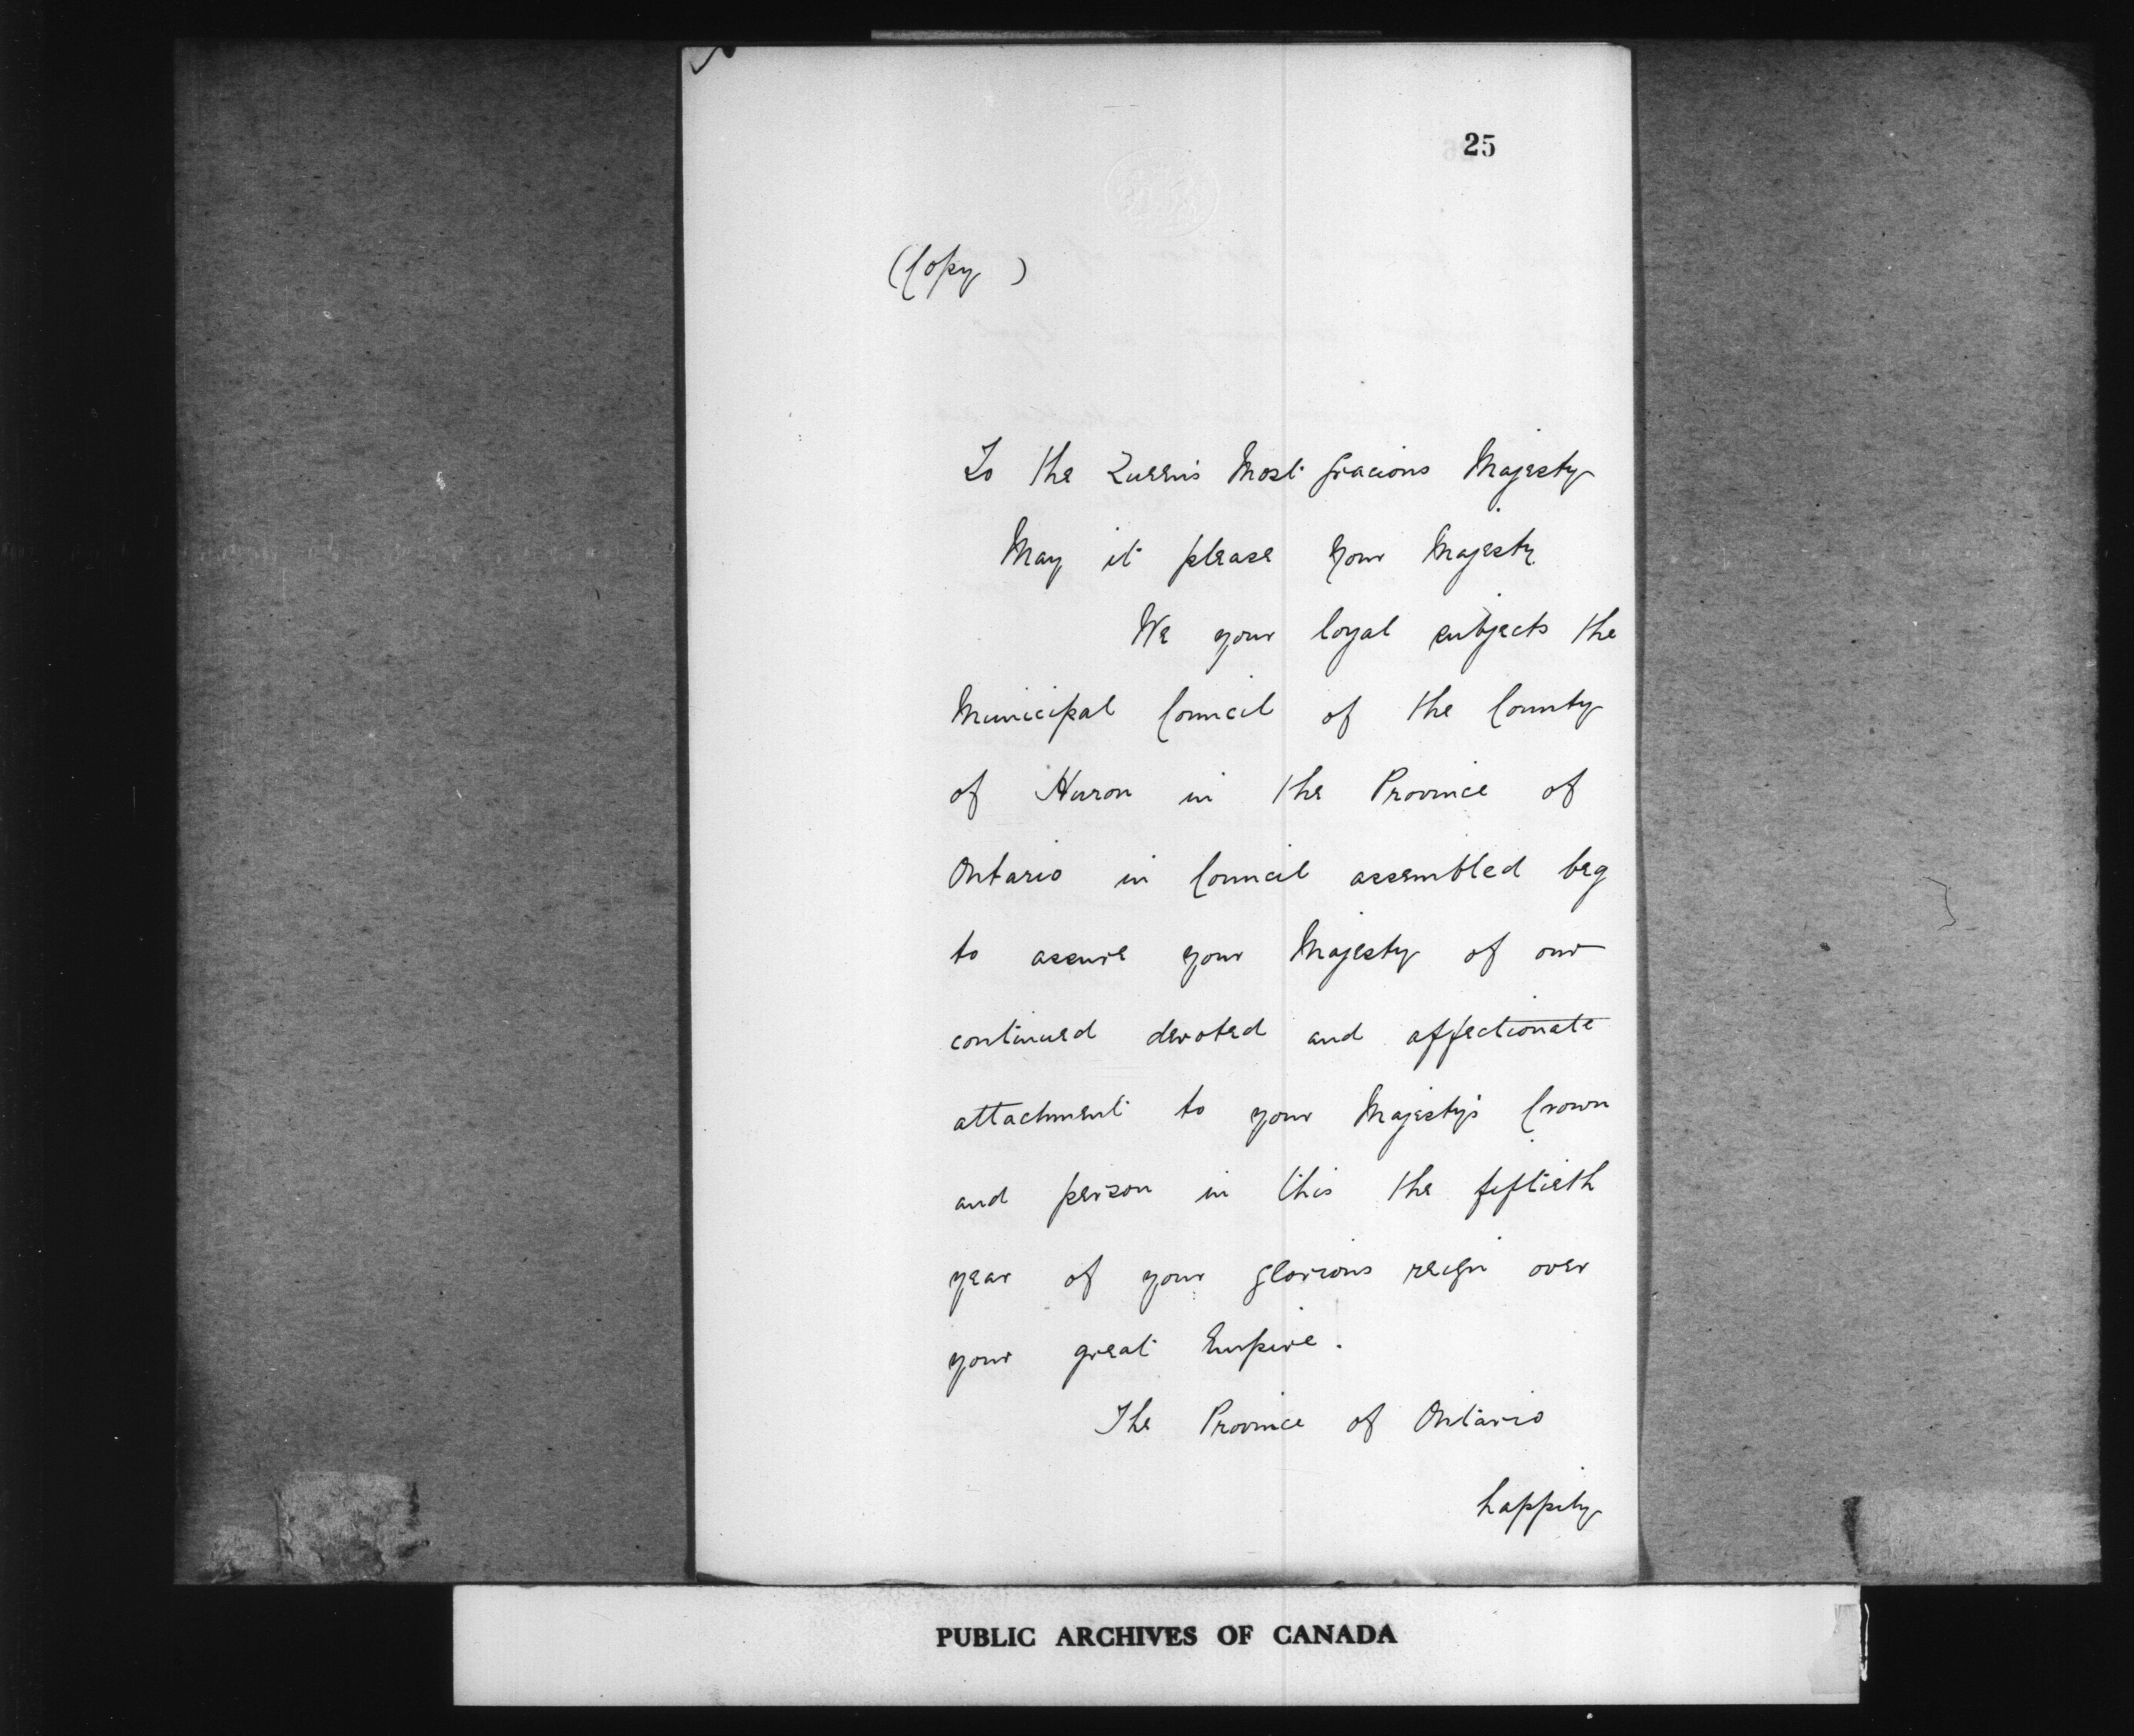 25
(Copy)
To the Queen's Most Gracious Majesty
May it please Your Majesty
We your loyal subjects the
Municipal Council of the County
of Huron in the Province of
Ontario in Council assembled beg
to assure your Majesty of our
continued devoted and affectionate
attachment to your Majesty's Crown
and person in this the fiftieth
year of your glorious reign over
your great Empire.
The Province of Ontario
happily
PUBLIC ARCHIVES OF CANADA